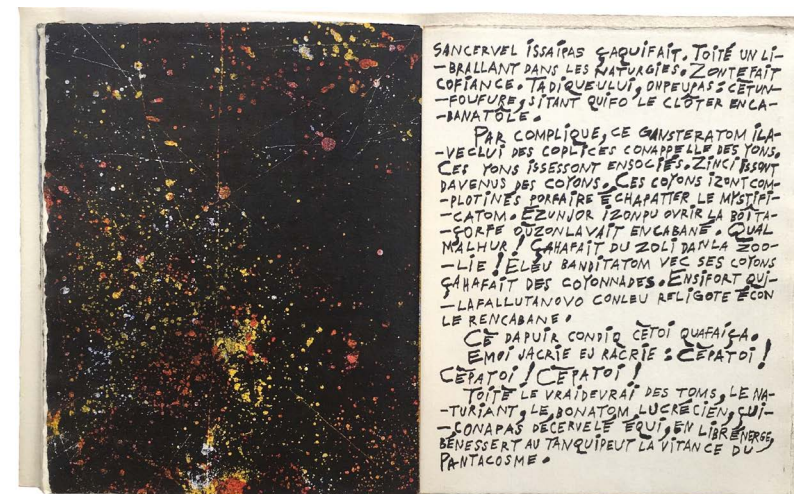 SANCERVEL ISSAIPAS ÇAQUIFAIT. TOITÉ UN LI-
-BRALLANT DANS LES NATURGIES. ZONTEFAIT
COFIANCE. TADIQUEULUI, ONPEUPAS : CÉTUN-
-FOUFURE, SITANT QUIFO LE CLÔTER ENCA-
-BANATÔLE.
PAR COMPLIQUE, CE GANSTERATOM ILA-
-VECLUI DES COPLICES CONAPPELLE DES YONS.
CES YONS ISSESSONT ENSOCIÉS. ZINCI ISSONT
DAVENUS DES COYONS. CES COYONS IZONTCOM-
-PLOTINÉS PORFAIRE ÉCHAPATTER LE MYSTIFI-
-CATOM. EZUNJOR IZONPU OVRIR LA BOITA-
-GORFE OUZONLAVAIT ENCABANÉ. QUAL
MALHUR ! ÇAHAFAIT DU ZOLI DANLA ZOO-
-LIE ! ELEU BANDITATOM VEC SES COYONS
ÇAHAFAIT DES COYONNADES. ENSIFORT QUI-
-LAFALLUTANOVO CONLEU RELIGOTE ÉCON
LE RENCABANE.
CÉ DAPUIR CONDIQ CÉTOI QUAFAIÇA.
EMOI JACRIE EU RACRIE : CÉPATOI !
CÉPATOI ! CÉPATOI !
TOITÉ LE VRAIDEVRAI DES TOMS, LE NA-
-TURIANT, LE BONATOM LUCRÉCIEN, ÇUI-
-ÇONAPAS DÉCERVELÉ ÉQUI, EN LIBRÉNERGE,
BÉNESSERT AU TANQUIPEUT LA VITANCE DU
PANTACOSME.